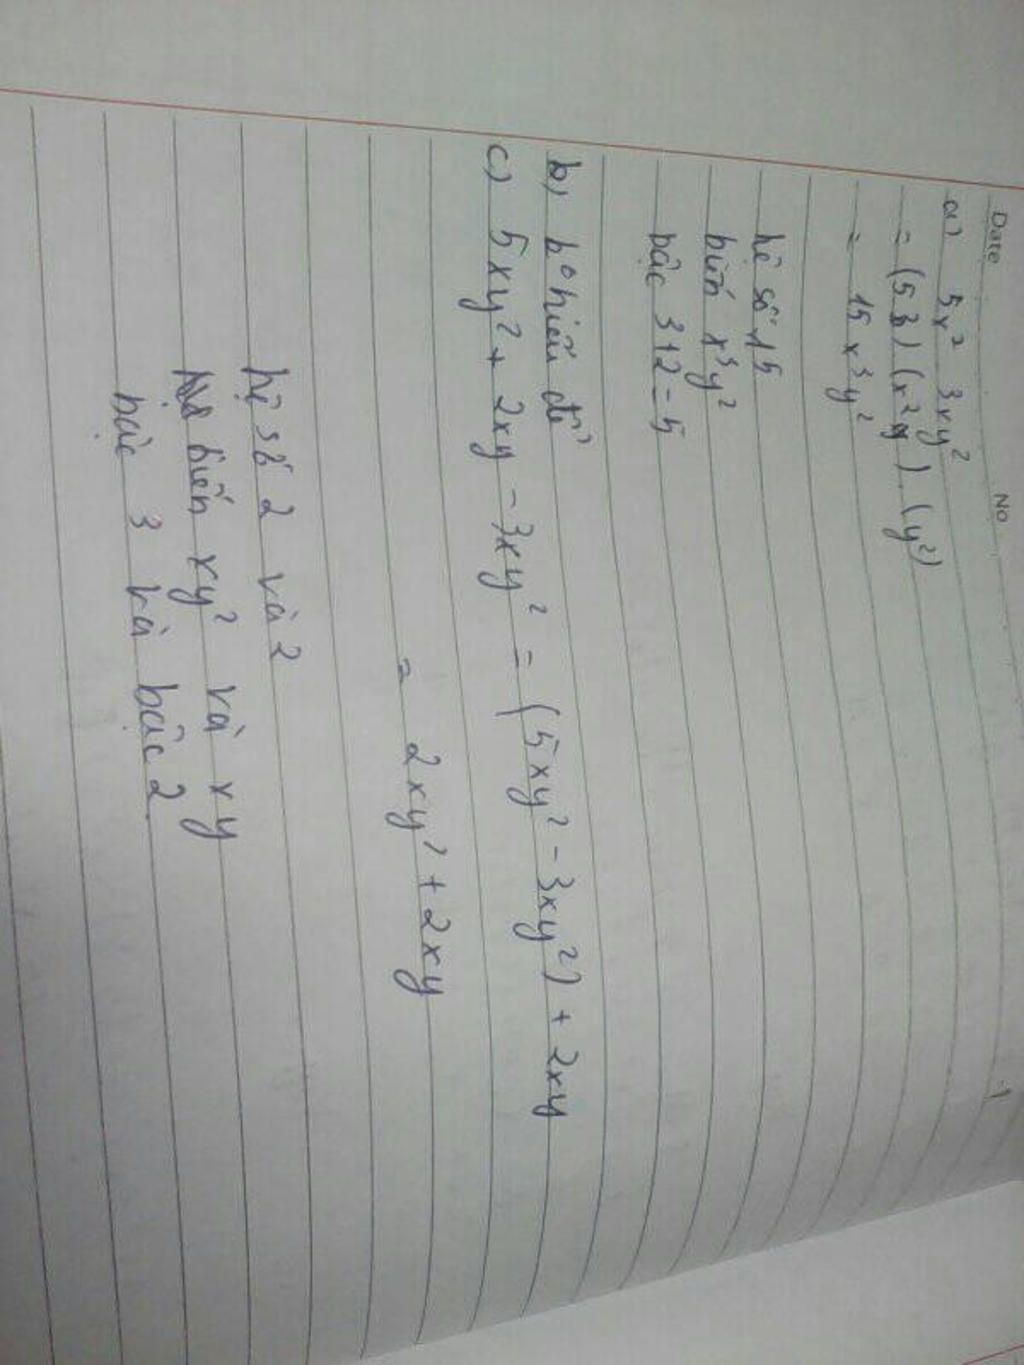 Date No
a) 5x² 3xy²
= (5 3) (x² x) (y²)
= 15 x³y²
hệ số 15
biến x³y²
bậc 3+2=5
b) k⁰ hiểu đề
c) 5xy² + 2xy - 3xy² = (5xy² - 3xy²) + 2xy
= 2xy² + 2xy
hệ số 2 và 2
biến xy² và xy
bậc 3 và bậc 2